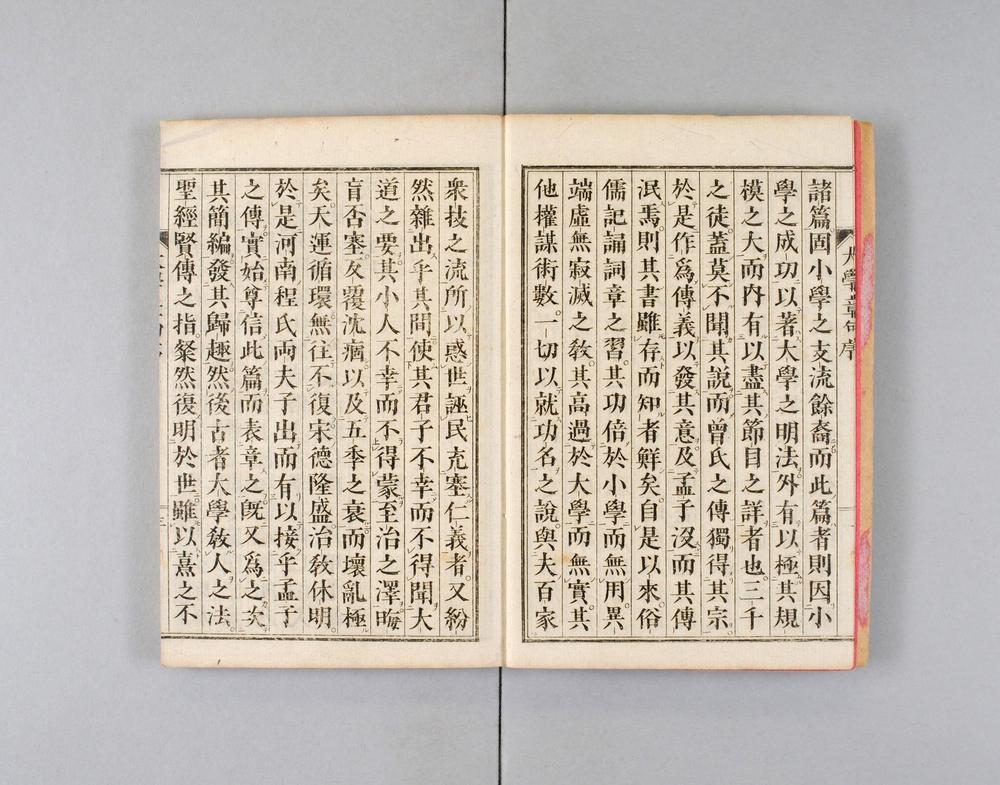 大學章句序
諸篇固小學之支流餘裔而此篇者則因小
學之成功以著大學之明法外有以極其規
模之大而內有以盡其節目之詳者也三千
之徒蓋莫不聞其說而曾氏之傳獨得其宗
於是作爲傳義以發其意及孟子沒而其傳
泯焉則其書雖存而知者鮮矣自是以來俗
儒記誦詞章之習其功倍於小學而無用異
端虛無寂滅之敎其高過於大學而無實其
他權謀術數一切以就功名之說與夫百家
衆技之流所以惑世誣民充塞仁義者又紛
然雜出乎其間使其君子不幸而不得聞大
道之要其小人不幸而不得蒙至治之澤晦
盲否塞反覆沈痼以及五季之衰而壞亂極
矣天運循環無往不復宋德隆盛治敎休明
於是河南程氏兩夫子出而有以接乎孟子
之傳實始尊信此篇而表章之旣又爲之次
其簡編發其歸趣然後古者大學敎人之法
聖經賢傳之指粲然復明於世雖以熹之不